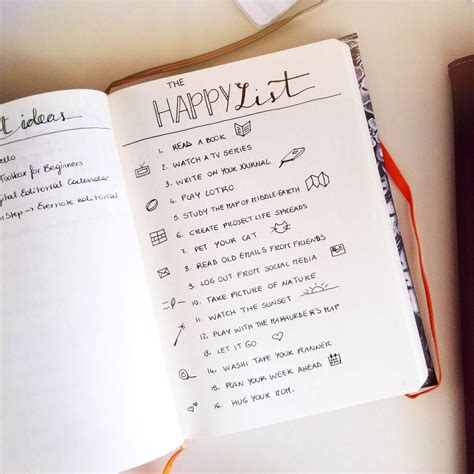 t ideas
ello
Toolbox for Beginners
gital Editorial Calendar
n Step → Evernote editorial
THE
HAPPY List
1. READ A BOOK
2. WATCH A TV SERIES
3. WRITE ON YOUR JOURNAL
4. PLAY LOTRO
5. STUDY THE MAP OF MIDDLE-EARTH
6. CREATE PROJECT LIFE SPREADS
7. PET YOUR CAT
8. READ OLD EMAILS FROM FRIENDS
9. LOG OUT FROM SOCIAL MEDIA
10. TAKE PICTURE OF NATURE
11. WATCH THE SUNSET
12. PLAY WITH THE MAHAURDER'S MAP
13. LET IT GO
14. WASHI TAPE YOUR PLANNER
15. PLAN YOUR WEEK AHEAD
16. HUG YOUR MOM.